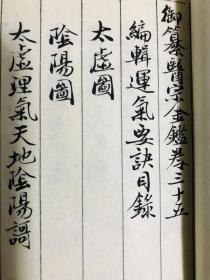 御纂醫宗金鑑卷三十五
編輯運氣要訣目錄
太虛圖
陰陽圖
太虛理氣天地陰陽謌